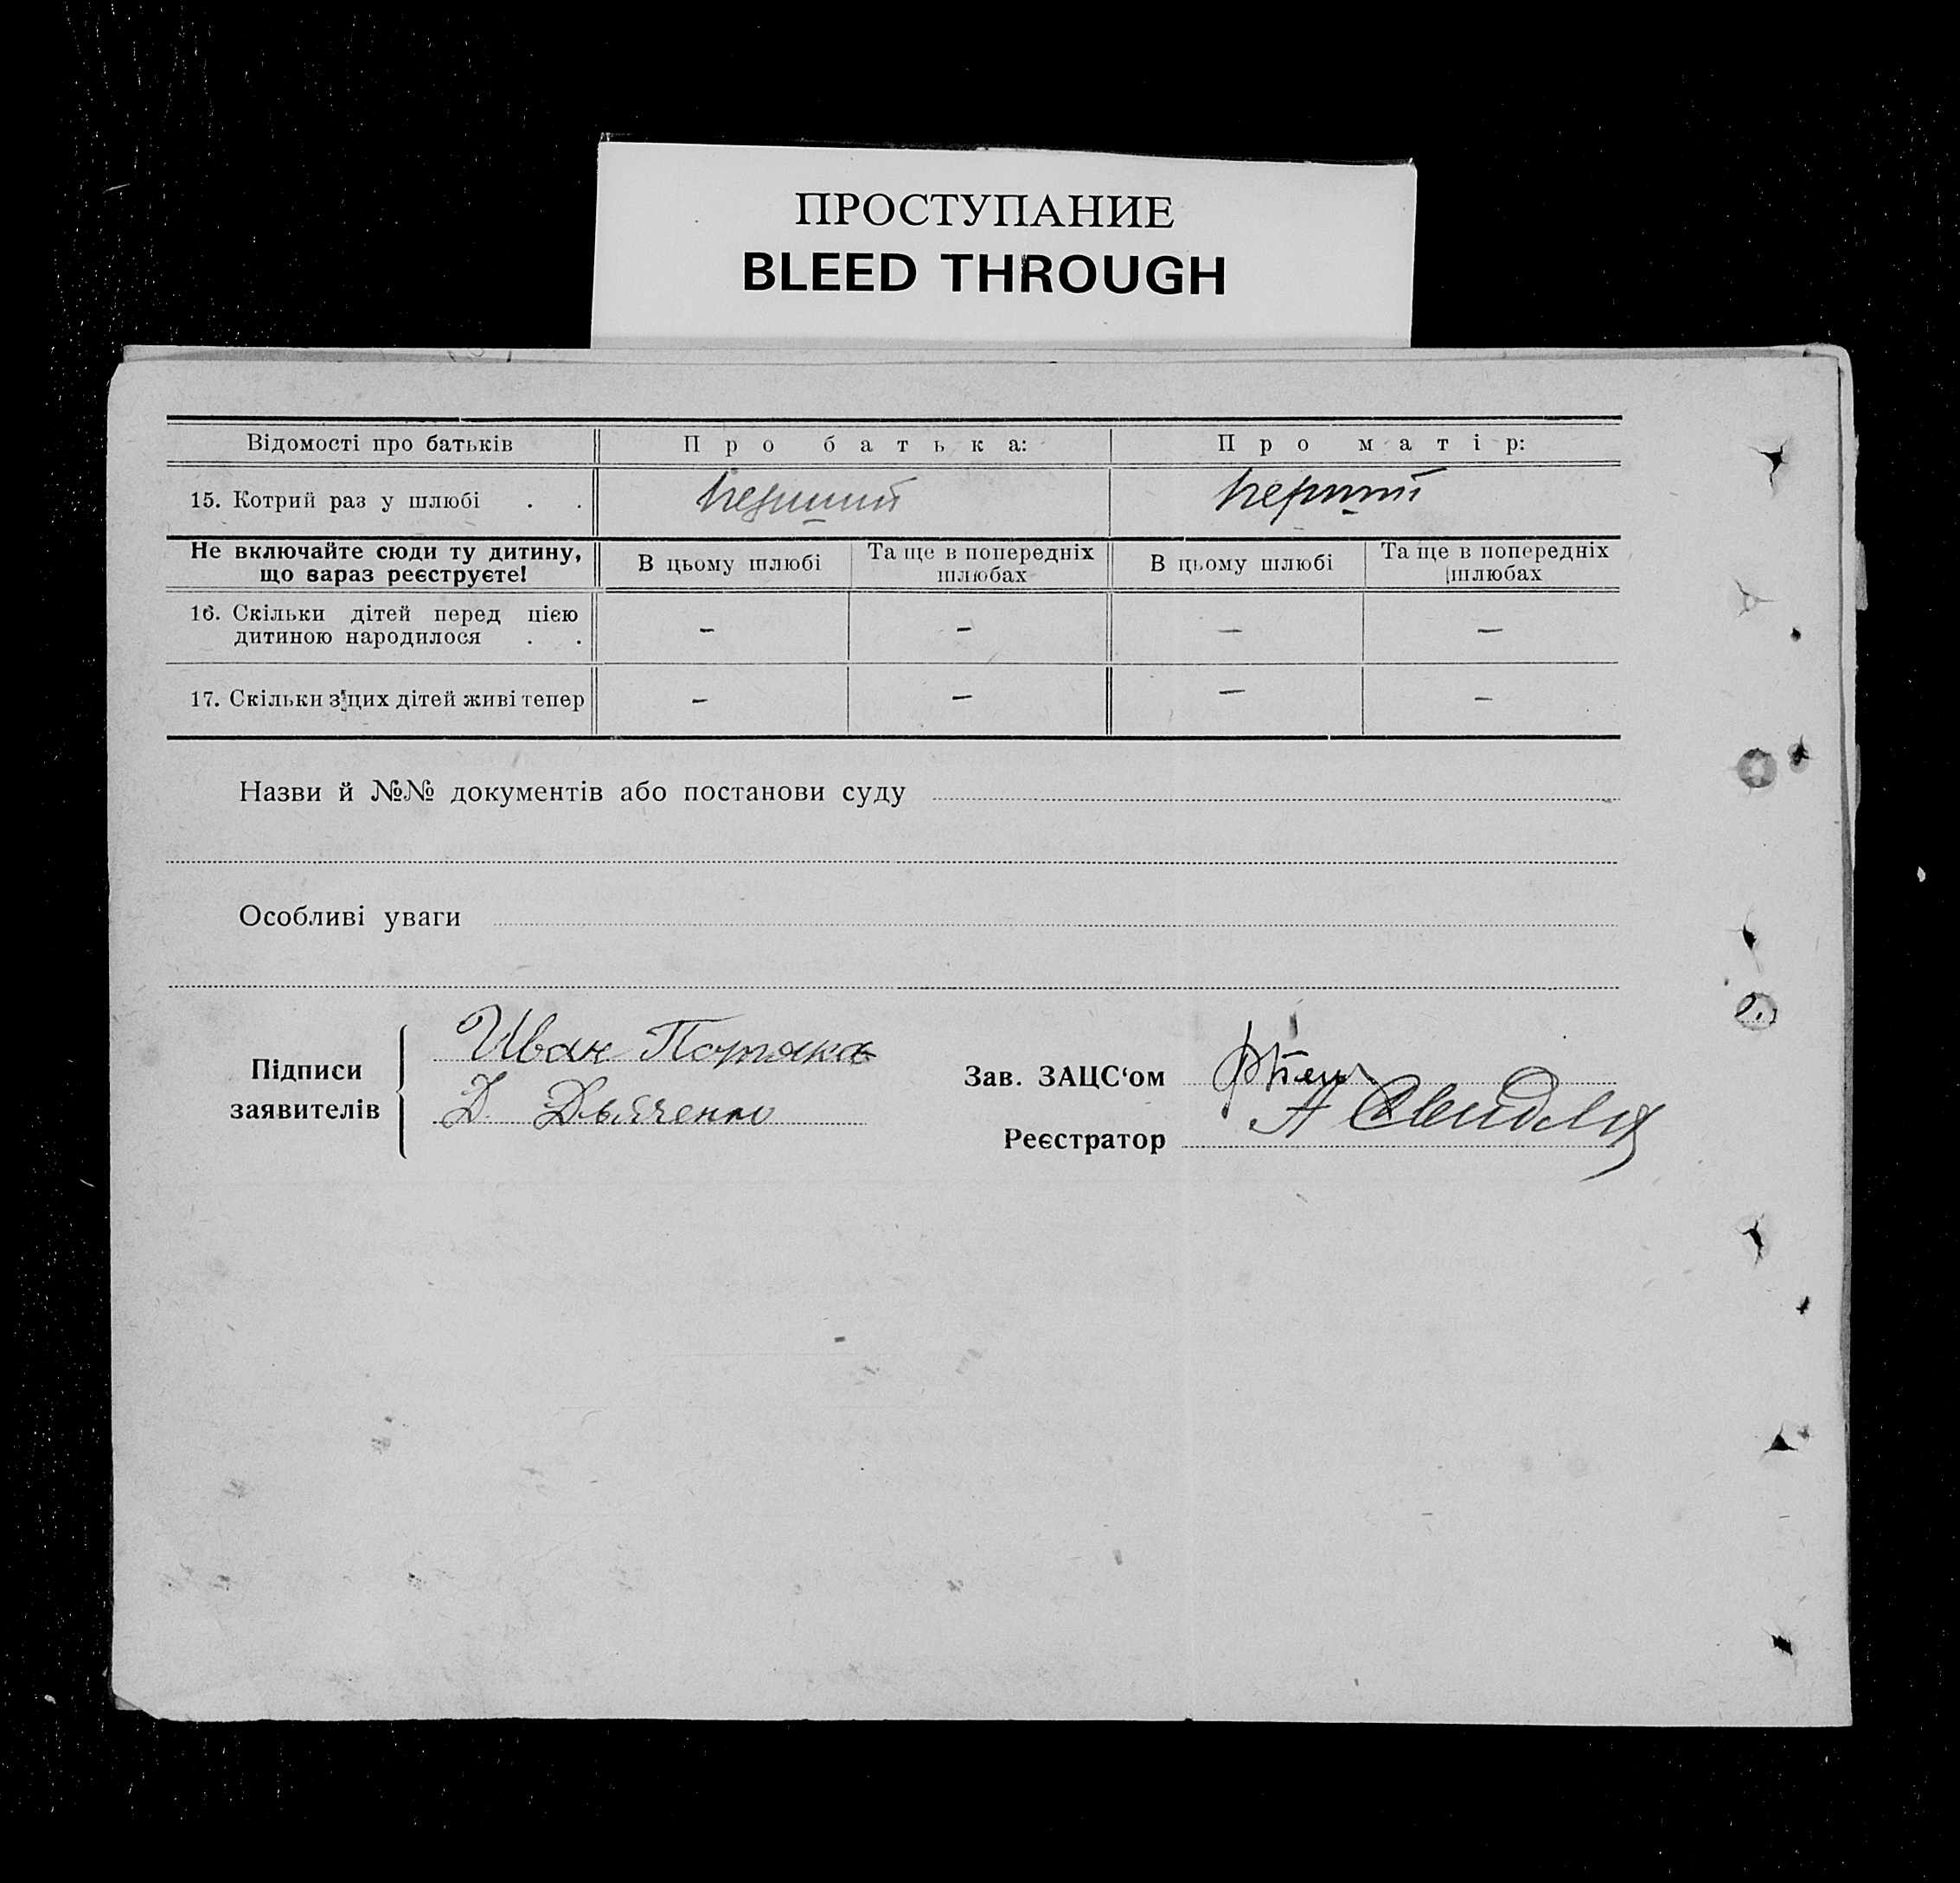 ПРОСТУПАНИЕ
BLEED THROUGH
Відомості про батьків Про батька: Про матір:
15. Котрий раз у шлюбі . . перший перший
Не включайте сюди ту дитину, що вараз реєструєте! В цьому шлюбі Та ще в попередніх шлюбах В цьому шлюбі Та ще в попередніх шлюбах
16. Скільки дітей перед цією
дитиною народилося . . – – – –
17. Скільки з цих дітей живі тепер – – – –
Назви й №№ документів або постанови суду
Особливі уваги
Підписи заявителів
Иван
Д. Дьяченко
Зав. ЗАЦС‘ом
Реєстратор А